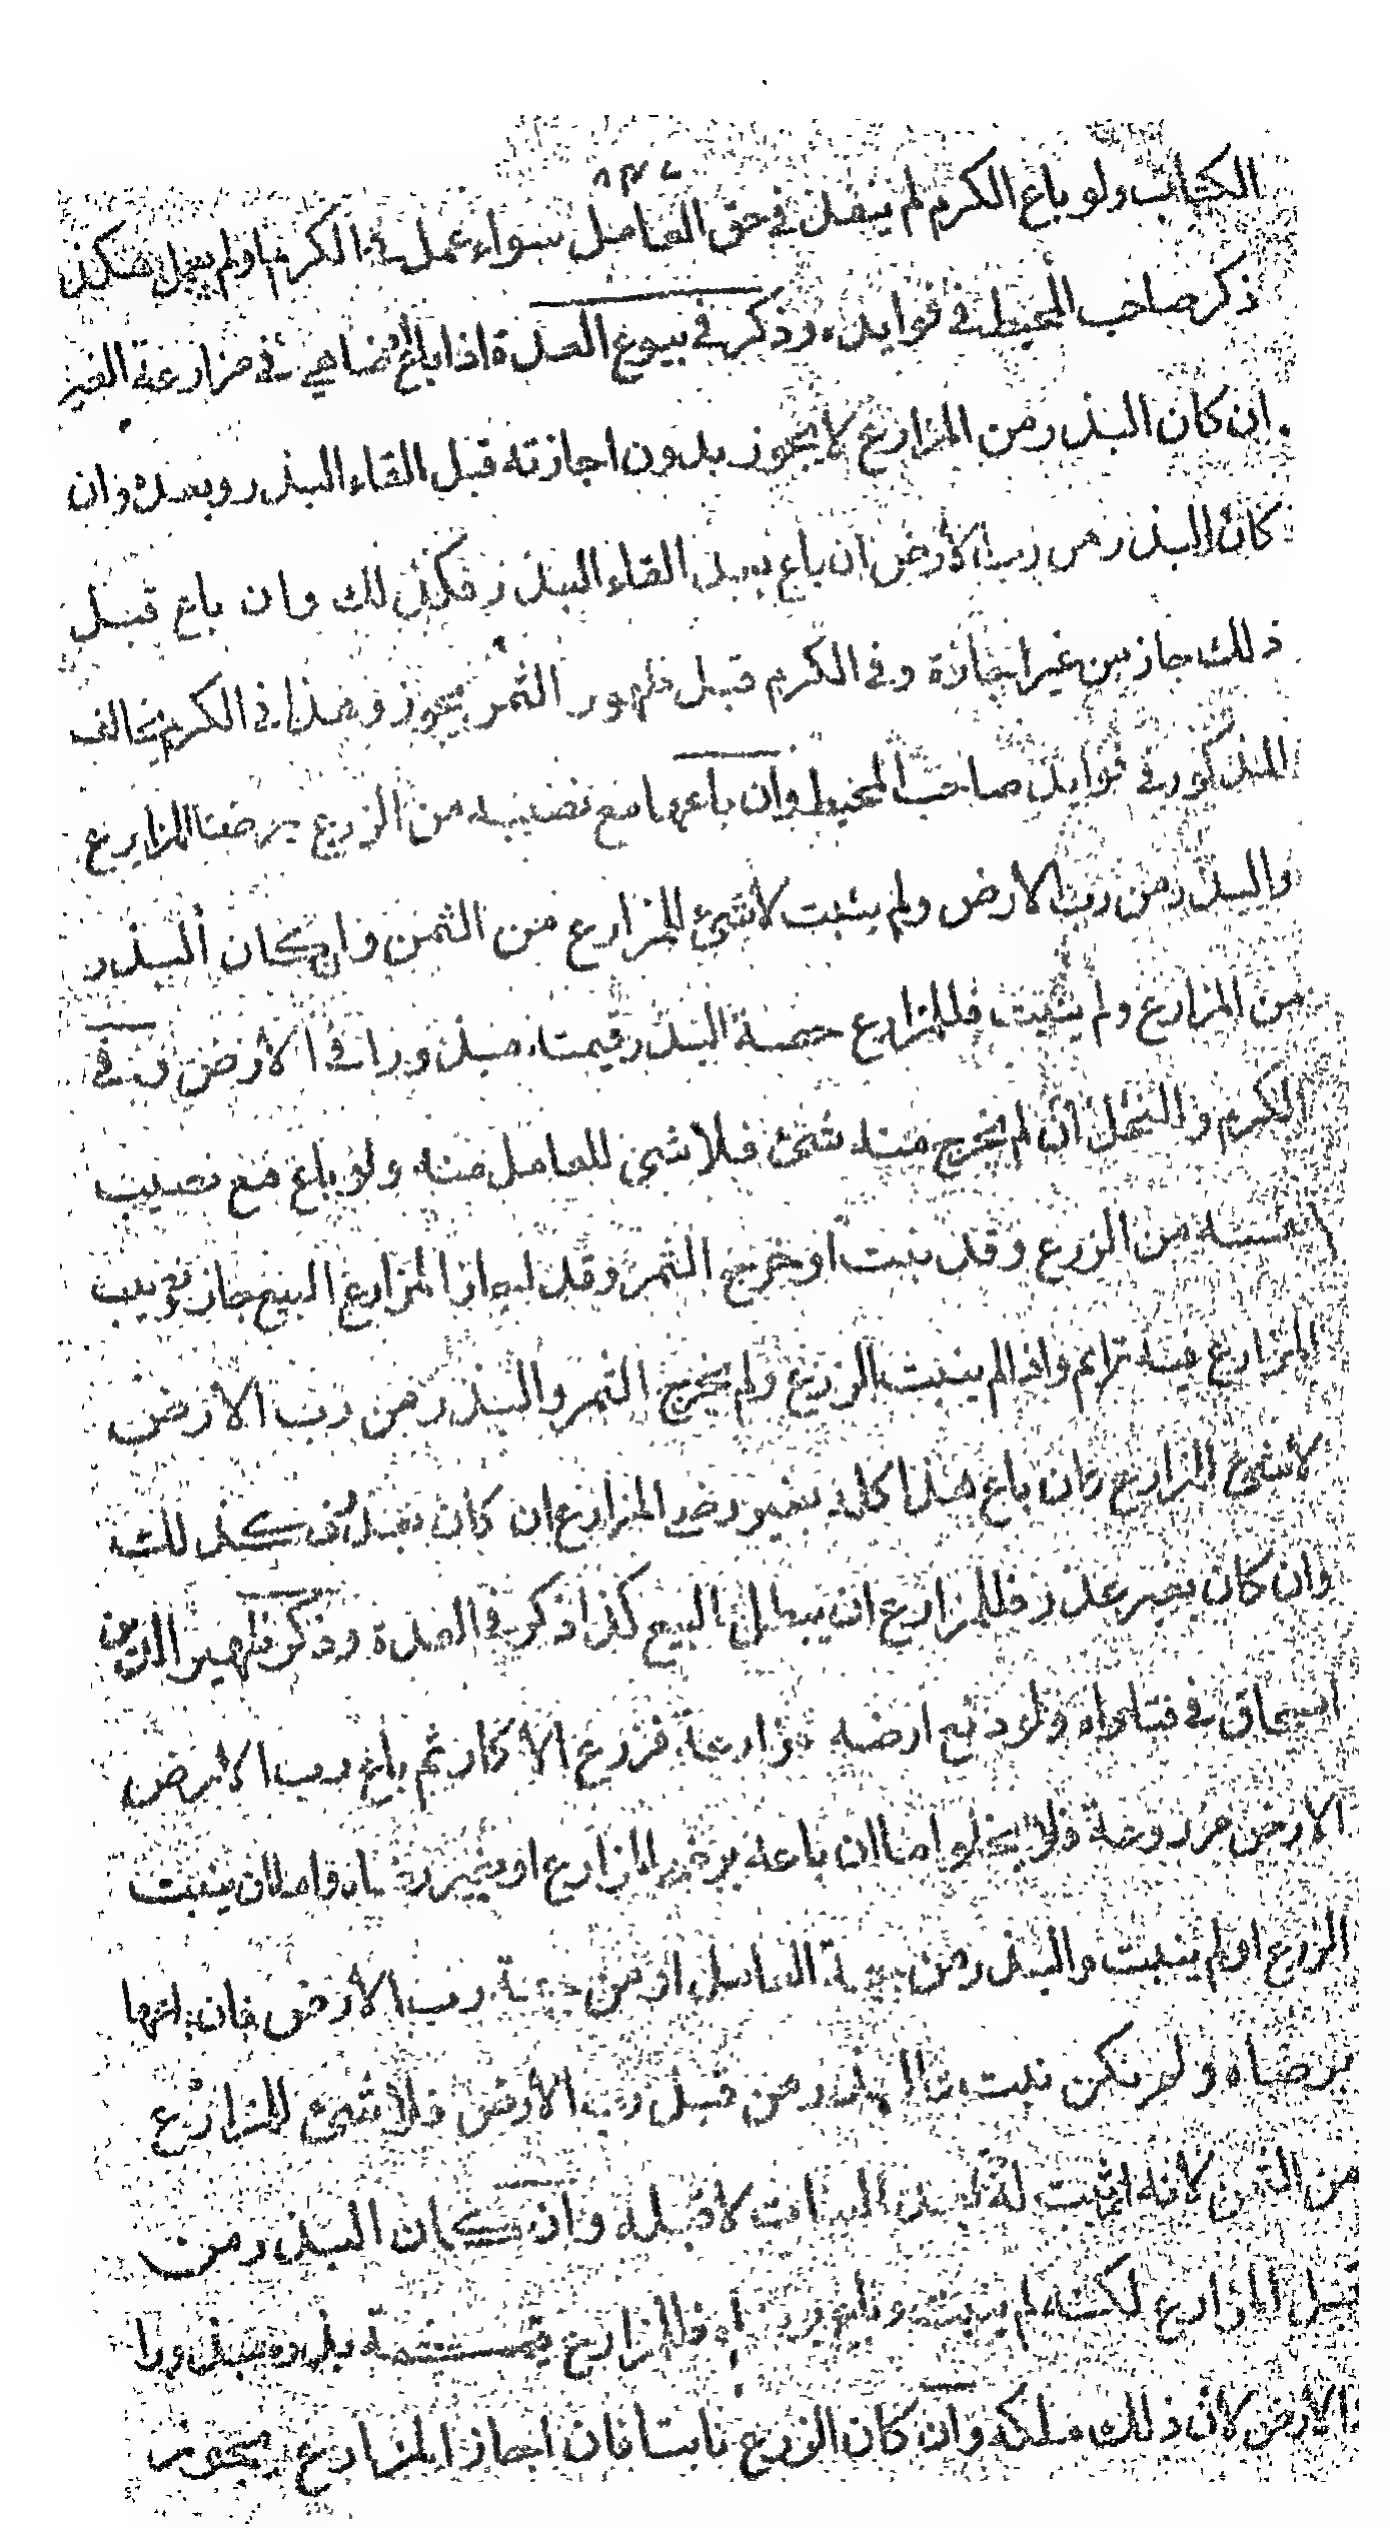 الكتاب ولو باع الكرم لم ينفذ في حق العامل سواء عمل في الكرم او لم يعمل هكذا
ذكر صاحب المحيط في فوايده وذكر في بيوع العدة اذا باع في مزارعة الغير
ان كان البذر من المزارع لا يجوز بدون اجازته قبل القاء البذر وبعده وان
كان البذر من رب الارض ان باع بعد القاء البذر فكذلك وان باع قبل
ذلك جاز من غير اجازة وفي الكرم قبل ظهور الثمر يجوز وهذا في الكرم يخالف
المذكور في فوايد صاحب المحيط وان باعها مع نصيبه من الزرع برضا المزارع
والبذر من رب الارض ولم ينبت لا شئ للمزارع من الثمن وان كان البذر
من المزارع ولم ينبت فللمزارع حصة البذر قيمته مبذورا في الارض وفي
الكرم والنخل ان لم يخرج منه شئ فلا شئ للعامل منه ولو باع مع نصيب
نفسه من الزرع وقد نبت او خرج الثمر وقد اجاز المزارع البيع جاز ونصيب
المزارع منه قايم واذا لم ينبت الزرع ولم يخرج الثمر والبذر من رب الارض
لا شئ للمزارع وان باع هذا كله بغير رضى المزارع ان كان بعذر فكذلك
وان كان بغير عذر فللمزارع ان يبطل البيع كذا ذكر في العدة وذكر ظهير الدين
اسحاق في فتاواه ولو دفع ارضه مزارعة فزرع الاكار ثم باع رب الارض
الارض مزروعة فلا يخلوا اما ان باعه برضى المزارع او بغير رضاه واما ان ينبت
الزرع او لم ينبت والبذر من جهة العامل او من جهة رب الارض فان باعها
برضاه ولم يكن نبت والبذر من قبل رب الارض فلا شئ للمزارع
من الثمن لانه يثبت له بعد النبات لا قبله وان كان البذر من
قبل المزارع لكنه لم ينبت فللمزارع قيمة بذره مبذورا
الارض لان ذلك ملكه وان كان الزرع نابتا فان اجاز المزارع يجوز